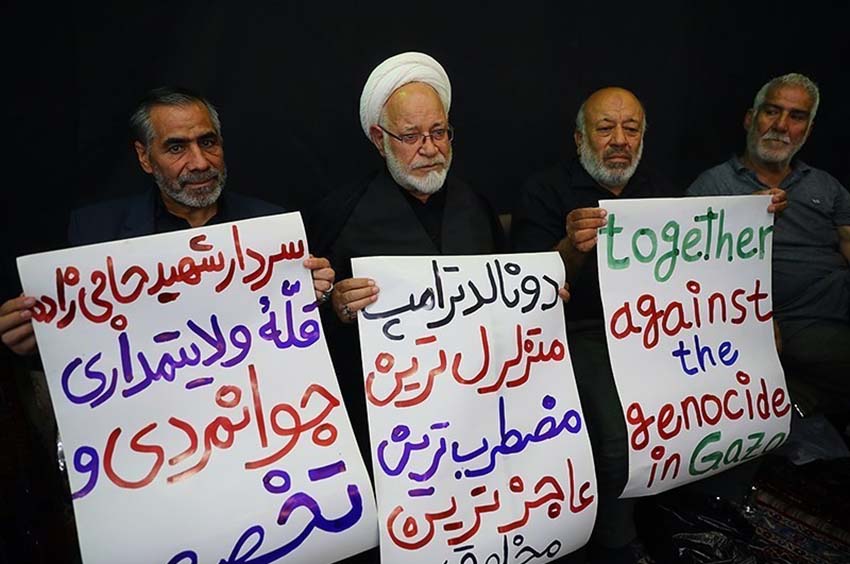 سردار شهید حاجی زاده
قلّهٔ ولایتمداری
جوانمردی و
تخصص
دونالد ترامپ
متزلزل ترین
مضطرب ترین
عاجز ترین
together
against
the
genocide
in Gaza